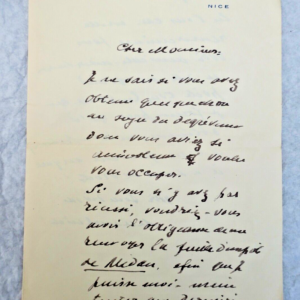 NICE
Cher Monsieur,
Je ne sais si vous avez
obtenu quelque chose
au sujet du dégrèvement
dont vous aviez si
aimablement voulu
vous occuper.
Si vous n'y avez pas
réussi, voudriez-vous
avoir l'obligeance de me
renvoyer la feuille d'impôt
de Médan, afin que je
puisse moi-même